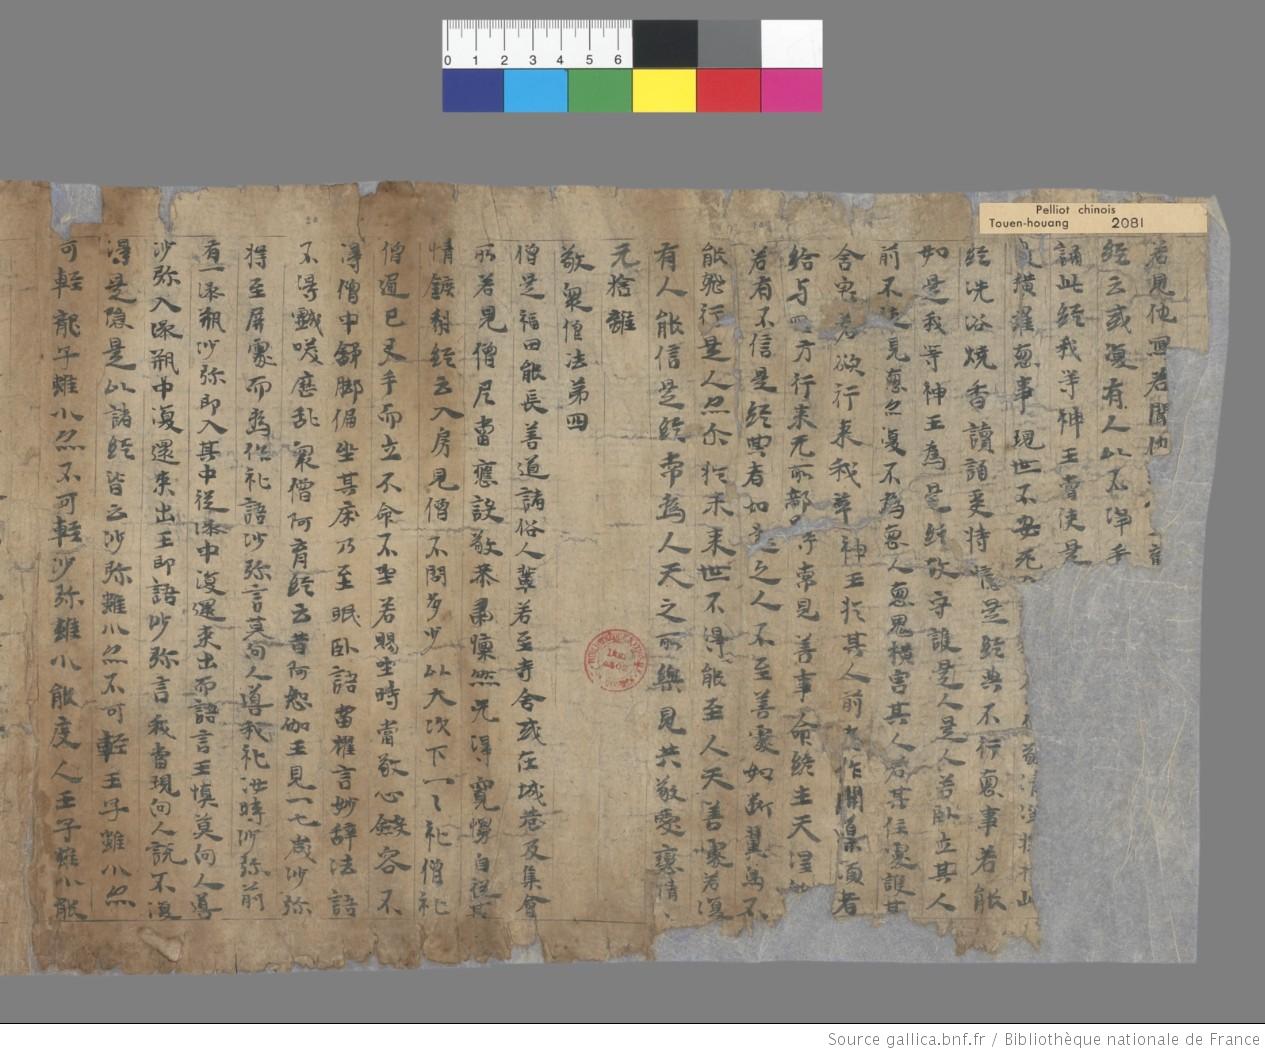 0 1 2 3 4 5 6
Pelliot chinois
Touen-houang 2081
若見他寫若聞他
經云或復有人以不淨手
誦此經我等神王當使是
橫羅惡事現世不安死
經洗浴燒香讀誦受持憶是經典不行惡事若能
如是我等神王為是經故守護是人是人若臥立其人
前不使見惡亦復不為惡人惡鬼橫害其人若其住處護其
舍宅若欲行來我等神王於其人前
給与四方行來无所部
常見善事命終生天
若有不信是經典者如是之人不至善處如斷翼鳥不
能飛行是人亦尒於未來世不得能至人天善處若復
有人能信是經常為人天之所樂見共敬愛戀情
无捨離
敬眾僧法第四
僧是福田能長善道諸俗人輩若至寺舍或在城巷及集會
所若見僧尼當應設敬恭肅懔然
情 對經云入房見僧不問多少以大次下一一礼僧礼
僧遍已叉手而立不命不坐若賜坐時當敬心斂容不
得僧中舒脚倨坐其床乃至眠臥語當櫂言妙辞法語
不得戲咲 乱眾僧阿育經云昔阿恕伽王見一七歲沙弥
將至屏處而為作礼語沙弥言莫向人導我礼汝時沙弥前
有一澡瓶沙弥即入其中從澡中復還來出而語言王慎莫向人導
沙弥入澡瓶中復還來出王即語沙弥言我當現向人說不復
得是隱是以諸經皆云沙弥雖小亦不可輕王子雖小亦
可輕龍子雖小亦不可輕沙弥雖小能度人王子雖小能
Source gallica.bnf.fr / Bibliothèque nationale de France